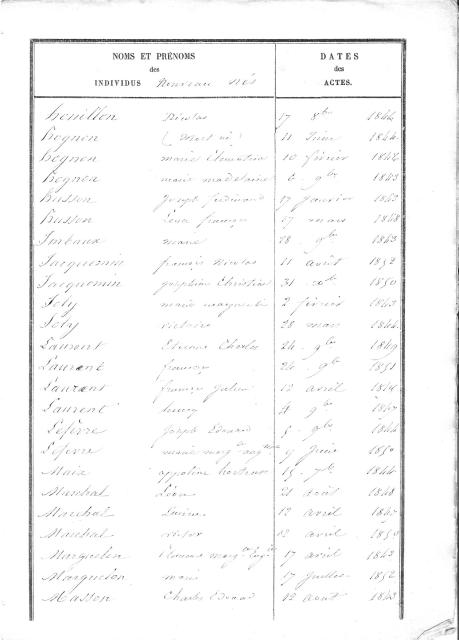 NOMS ET PRÉNOMS DATES
des des
INDIVIDUS Nouveau Nés ACTES.
Nicolas 17 8bre 1844
Hognon (Mort né) 11 Juin 1844
Hognon marie Clémentine 10 février 1842
Hognon marie madelaine 6 9bre 1843
Husson Joseph ferdinand 17 Janvier 1843
Husson françois 27 mars 1848
Imbaux marie 28 9bre 1843
Jacquemin françois Nicolas 11 août 1852
Jacquemin Joséphine Christine 31 1850
Joly marie marguerite 2 février 1843
Joly victoire 28 mars 1844
Laurent Etienne Charles 24 9bre 1849
Laurent françois 24 9bre 1851
Laurent françois Julien 12 avril
Laurent 4 9bre 1847
Lefèvre Joseph Edouard 5 9bre 1844
Lefèvre marie 9 Juin 1850
Maix appoline 15 7bre 1844
Maréchal Léon 21 août 1848
Maréchal 12 avril
Maréchal victor 12 avril
Marquelon 17 avril 1843
Marquelon marie 17 Juillet 1852
Masson Charles Edouard 12 août 1843